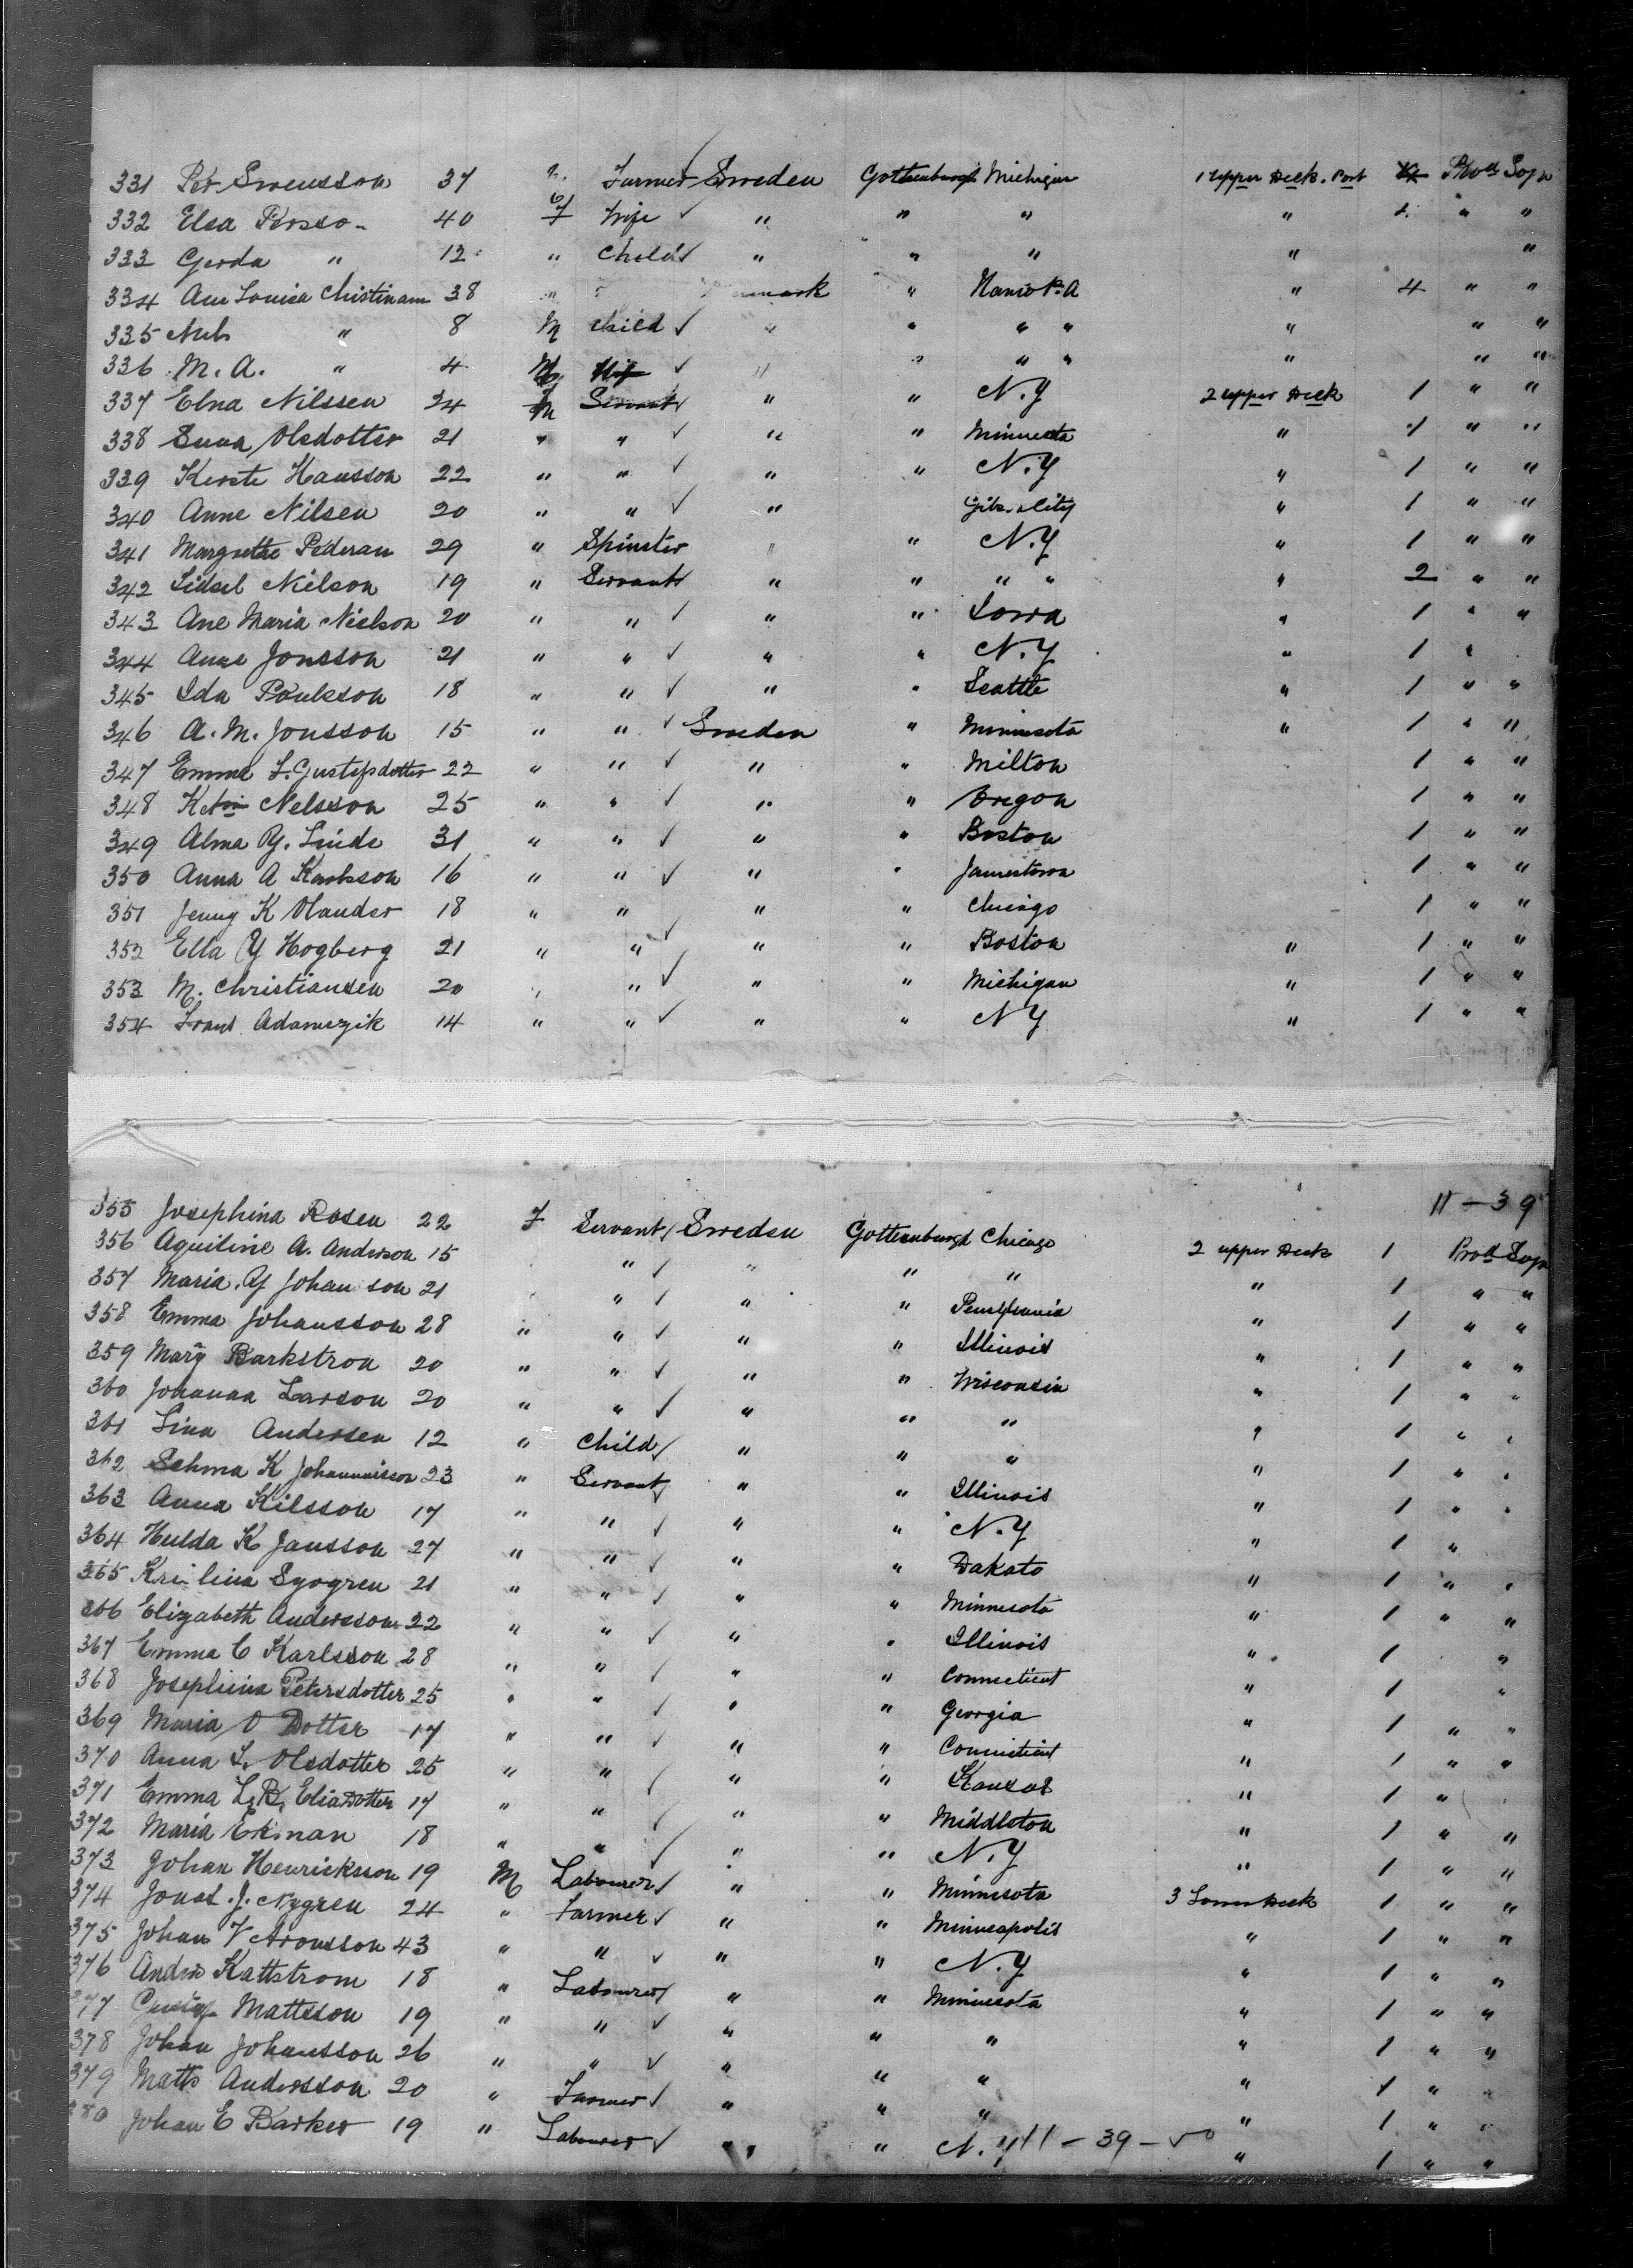 331 Per Swensson 37 Farmer Sweden Gottenburgh Michigan 1 upper Deck. Port
332 Elsa 40 F Wife ✓ " " " " " "
333 Gerda " 12 " Child ✓ " " " " "
334 Ane Louisa Christinam 38 " " " 4 " "
335 " 8 M Child ✓ " " " " " " "
336 M. A. " 4 ✓ " " " " " " "
337 Elna Nilssen 24 F Servant ✓ " " N.Y 2 upper Deck 1 " "
338 Olsdotter 21 " " ✓ " " Minnesota " 1 " "
339 Kerste Hansson 22 " " ✓ " " N.Y " 1 " "
340 Anne Nilsen 20 " " ✓ " City " 1 " "
341 Margrethe Pedersen 29 " Spinster " " N.Y " 1 " "
342 Sidsel Nielson 19 " Servant ✓ " " " " " 2 " "
343 Ane Maria Nielson 20 " " ✓ " " Iowa " 1 " "
344 Anne Jonsson 21 " " ✓ " " N.Y " 1 "
345 Ida Poulsson 18 " " ✓ " " Seattle " 1 " "
346 A. M. Jonsson 15 " " ✓ Sweden " Minnesota " 1 " "
347 Emma L. Gustafsdotter 22 " " ✓ " " Milton 1 " "
348 Nelsson 25 " " ✓ " " Oregon 1 " "
349 Alma Y. Linde 31 " " ✓ " " Boston 1 " "
350 Anna A Karlsson 16 " " ✓ " " Jamestown 1 " "
351 Jenny K Olander 18 " " ✓ " " Chicago 1 " "
352 Ella Y Hogberg 21 " " " " Boston " 1 " "
353 M. Christiansen 20 " " ✓ " " Michigan " 1 " "
354 Adamczik 14 " " ✓ " " N Y " 1 " "
11 - 39
355 Josephina Rosen 22 F Servant ✓ Sweden Gottenburgh Chicago 2 upper Deck 1
356 Aquiline A. Anderson 15 " ✓ " " " " 1 " "
357 Maria. Y Johanson 21 " ✓ " " Pensylvania " 1 " "
358 Emma Johansson 28 " " ✓ " " Illinois " 1 " "
359 Mary Barkstron 20 " " ✓ " " Wisconsin " 1 " "
360 Johanna Larson 20 " " ✓ " " " " 1 " "
361 Lina Andersen 12 " Child ✓ " " " " 1 " "
362 Selma K Johannisson 23 " Servant ✓ " " Illinois " 1 " "
363 Anna Kilsson 17 " " ✓ " " N.Y " 1 "
364 Hulda K Jansson 27 " " ✓ " " Dakato " 1 " "
365 Syogren 21 " " ✓ " " Minnesota " 1 " "
366 Elizabeth Andersson 22 " " ✓ " " Illinois " 1 "
367 Emma C Karlsson 28 " " ✓ " " Connecticut " 1 "
368 Josephina Petersdotter 25 " " ✓ " " Georgia " 1 " "
369 Maria O Dotter 17 " " ✓ " " Connecticut " 1 " "
370 Anna L. Olsdotter 25 " " ✓ " " Kansas " 1 "
371 Emma L. B. EliaDotter 17 " " ✓ " " Middleton " 1 " "
372 Maria Ekman 18 " " ✓ " " N.Y " 1 " "
373 Johan Henricksson 19 M Labourer ✓ " " Minnesota 3 Lower Deck 1 " "
374 Jonas. J. Nygren 24 " Farmer ✓ " " Minneapolis " 1 " "
375 Johan V Aronsson 43 " " ✓ " " N.Y " 1 " "
376 Kattstrom 18 " Labourer ✓ " " Minnesota " 1 " "
377 Mattsson 19 " " ✓ " " " " 1 " "
378 Johan Johansson 26 " " ✓ " " " " 1 " "
379 Matts Andersson 20 " Farmer ✓ " " " " 1 " "
380 Johan E Barker 19 " Labourer ✓ " " N.Y 11 - 39 - " 1 " "